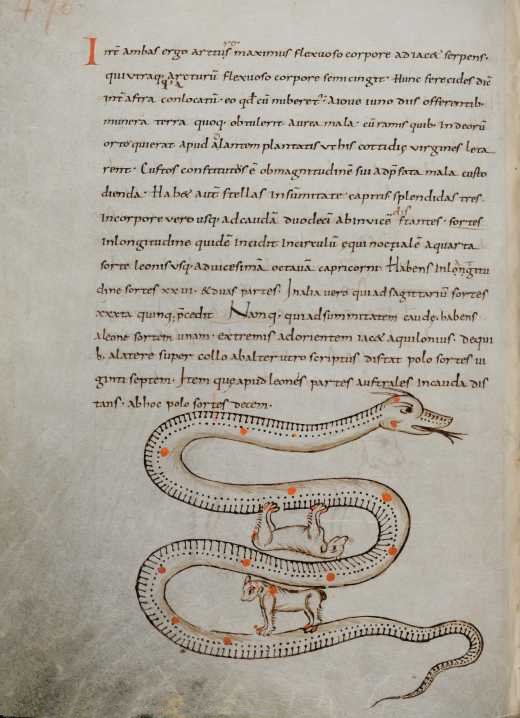 Int̄ ambas ergo arctus maximus flexuoso corpore adiacᷓ serpens·
qui utraq; arcturū flexuoso corpore semicingit· Hunc ferecides dic̄
int̄ astra conlocatū· eo qđ cū nuberet Ioui iuno diis offerentib;
munera terra quoq; obtulerit aurea mala· cū ramis quib; in deorū
orto quierat apud alantem plantatis ut his cottidie virgines leta
rent· Custos constitutus ē ob magnitudinē sui ad p̄fata mala custo
dienda· Habᷓ aut̄ stellas in sūmitate capitis splendidas tres
in corpore vero usq; ad caudā duodeci ab invicē distantes· sortes
in longitudine quidē incidit in circulū equinoctiale a quarta
sorte leonis usq; ad vicesimā octavā capricorni· Habens in longitu
dine sortes xxvi· & duas partes· In alia vero qui ad sagittariū sortes
xxxta quinq; p̄cedit Namq; qui ad summitatem caude· habens
a leone sortem unam· extremis ad orientem iacᷓ aquilonius· de qui
b; a latere super collo ab altervtro scriptus distat polo sortes vi
ginti septem· Item que apud leonēs partes australes in cauda dis
tans· ab hoc polo sortes decem·